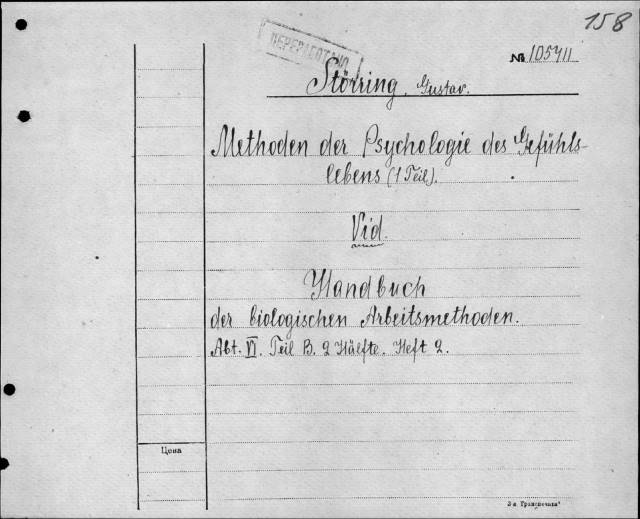 158
ПЕРЕПЛЕТАНО
№ 105411
Störring, Gustav.
Methoden der Psychologie des Gefühls-
lebens (1 Teil).
Vid.
Handbuch
der biologischen Arbeitsmethoden.
Abt. VI. Teil B. 2 Hälfte. Heft 2.
Цена
3-я Транспечать